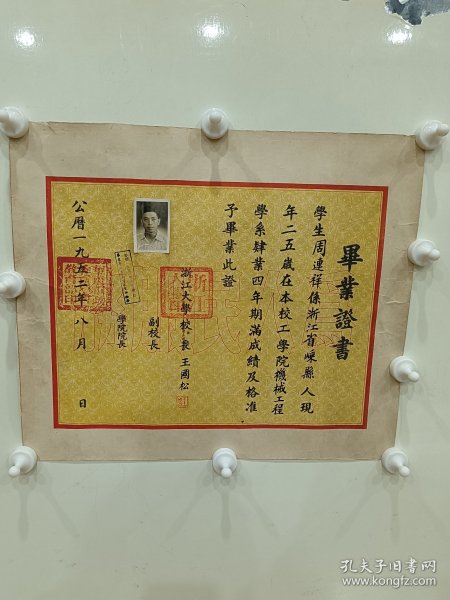 畢業證書
學生周連祥係浙江省嵊縣人現
年二五歲在本校工學院機械工程
學系肄業四年期滿成績及格准
予畢業此證
浙江大學校長王國松
副校長
學院院長
公曆一九五二年八月 日
孔夫子旧书网
www.kongfz.com